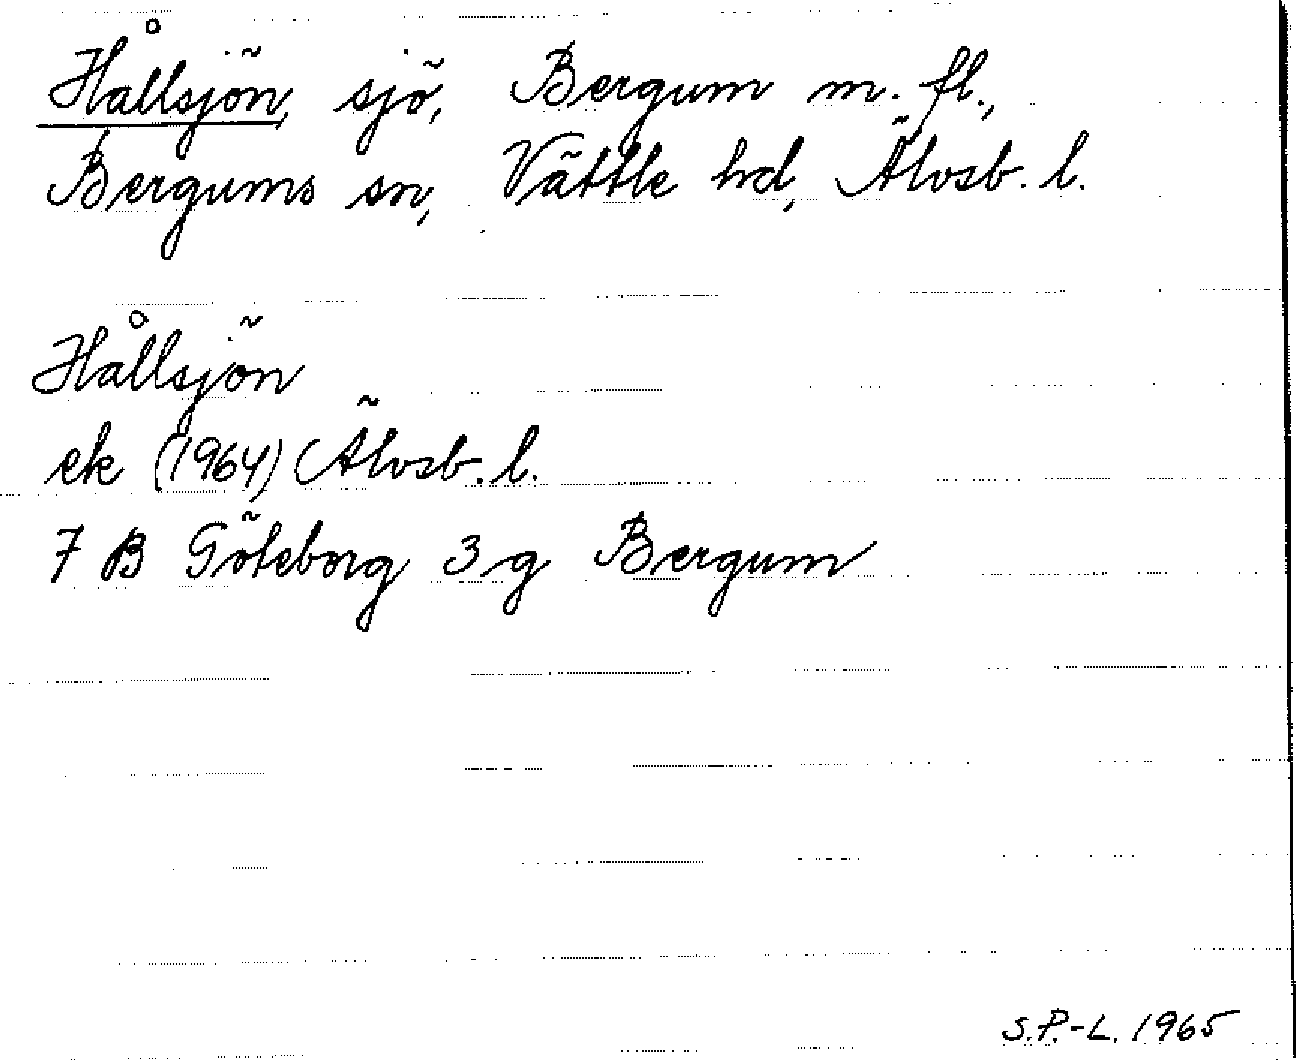 Hållsjön, sjö, Bergum m. fl.,
Bergums sn, Vättle hd, Älvsb. l.
Hållsjön
ek (1964) Älvsb. l.
7 B Göteborg 3 g Bergum
S.P.-L. 1965